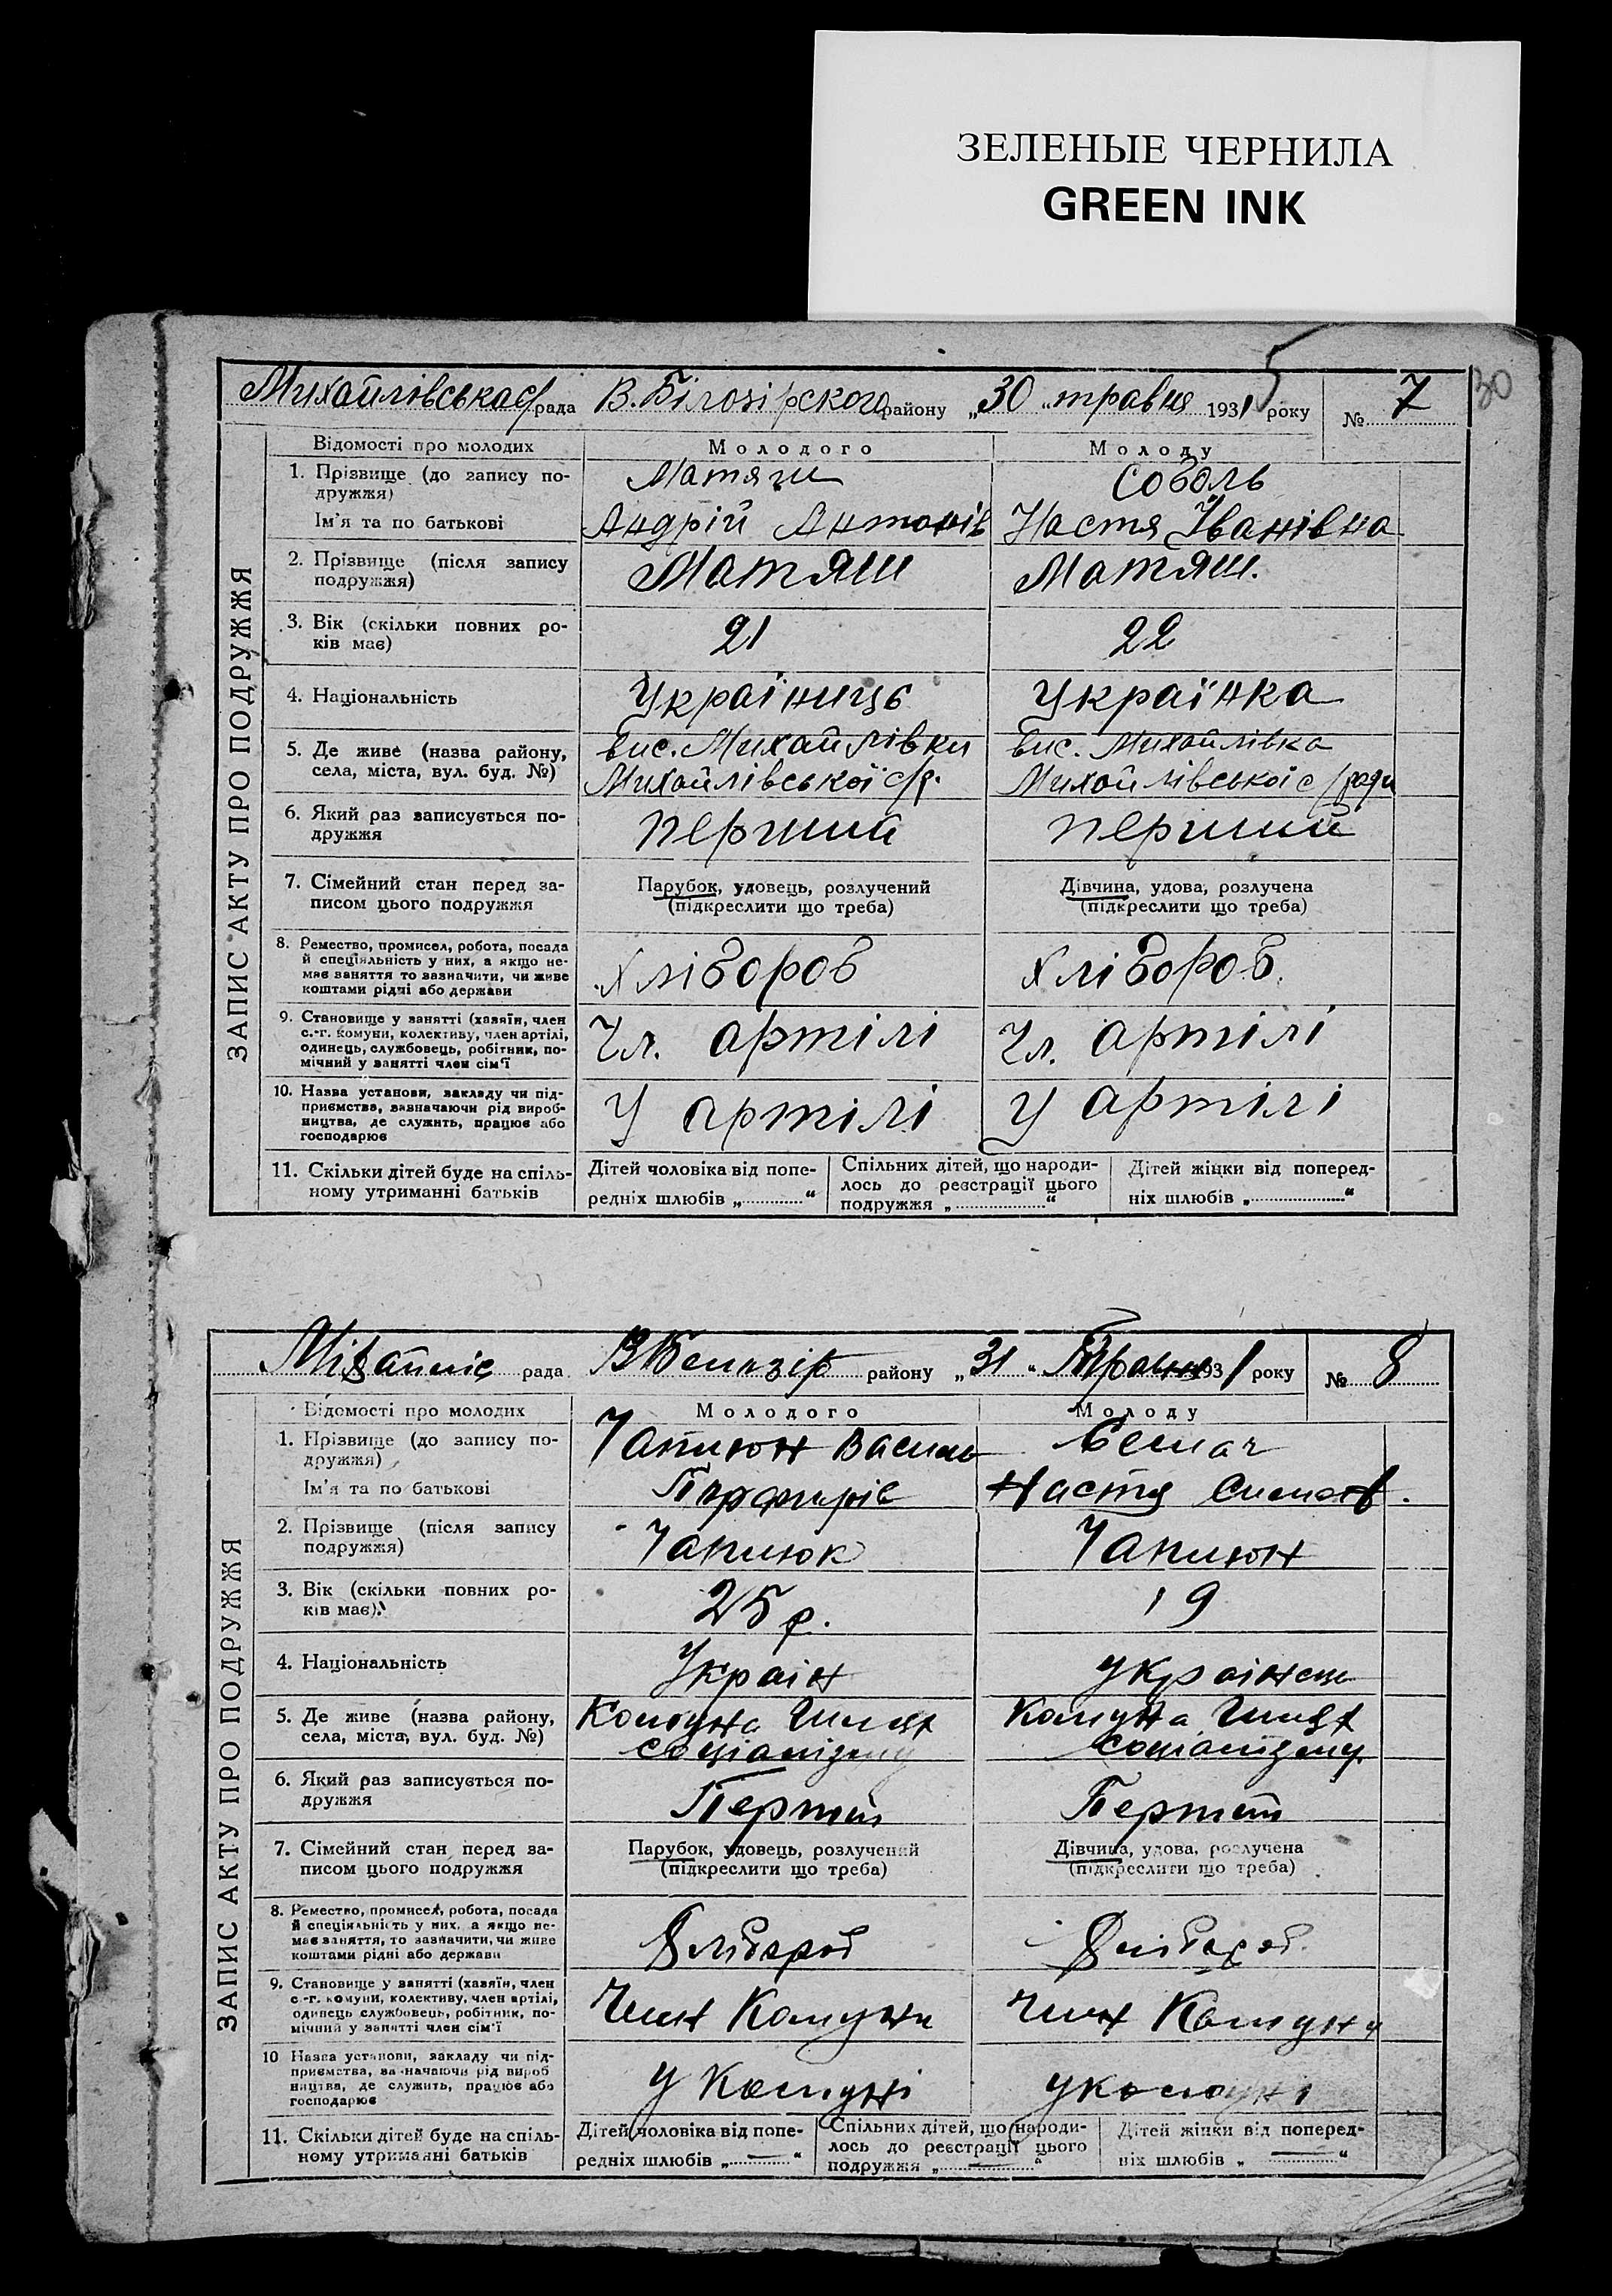 ЗЕЛЕНЫЕ ЧЕРНИЛА
GREEN INK
30
Михайлівська с/рада В. Білозірского району „30“ травця 1931 року № 7
ЗАПИС АКТУ ПРО ПОДРУЖЖЯ
Відомості про молодих Молодого Молоду
1. Прізвище (до запису по-
дружжя) Матяш Соболь
Ім'я та по батькові Андрій Антонів Настя Іванівна
2. Прізвище (після запису
подружжя) Матяш Матяш.
3. Вік (скільки повних ро-
ків має) 21 22
4. Національність Українць Українка
5. Де живе (назва району, вис. Михайлівки вис. Михайлівка
села, міста, вул. буд. №) Михайлівської с/р. Михайлівської с/ради
6. Який раз записується по-
дружжя перший перший
7. Сімейний стан перед за- Парубок, удовець, розлучений Дівчина, удова, розлучена
писом цього подружжя (підкреслити що треба) (підкреслити що треба)
8. Ремество, промисел, робота, посада
й спеціяльність у них, а якщо не-
має заняття то зазначити, чи живе
коштами рідні або держави хлібороб хлібороб.
9. Становище у занятті (хазяїн, член
с.-г. комуни, колективу, член артілі,
одинець, службовець, робітник, по-
мічний у занятті член сім'ї Чл. артілі Чл. артілі
10. Назва установи, закладу чи під-
приємства, зазначаючи рід вироб-
ництва, де служить, працює або
господарює У артілі У артілі
11. Скільки дітей буде на спіль- Дітей чоловіка від попе- Спільних дітей, що народи- Дітей жінки від поперед-
ному утриманні батьків редніх шлюбів „ “ лось до реєстрації цього ніх шлюбів „ “
подружжя „ “
рада району „31“ 1931 року № 8
ЗАПИС АКТУ ПРО ПОДРУЖЖЯ
Відомості про молодих Молодого Молоду
1. Прізвище (до запису по-
дружжя) Василь
Ім'я та по батькові Настя
2. Прізвище (після запису
подружжя) Чаплюк
3. Вік (скільки повних ро-
ків має) 25 р. 19
4. Національність Україн
5. Де живе (назва району, Комуна Комуна
села, міста, вул. буд. №) соціалізму соціалізму
6. Який раз записується по-
дружжя Перший Перший
7. Сімейний стан перед за- Парубок, удовець, розлучений Дівчина, удова, розлучена
писом цього подружжя (підкреслити що треба) (підкреслити що треба)
8. Ремество, промисел, робота, посада
й спеціяльність у них, а якщо не-
має заняття, то зазначити, чи живе
коштами рідні або держави Хлібороб Хлібороб
9. Становище у занятті (хазяїн, член
с.-г. комуни, колективу, член артілі,
одинець службовець, робітник, по-
мічний у занятті член сім'ї Член Комуни Член Комуни
10 Назва установи, закладу чи під-
приємства, зазначаючи рід вироб
ництва, де служить, працює або
господарює У Комуні У комуні
11. Скільки дітей буде на спіль- Дітей чоловіка від попе- Спільних дітей, що народи- Дітей жінки від поперед-
ному утриманні батьків редніх шлюбів „—“ лось до реєстрації цього ніх шлюбів „—“
подружжя „—“